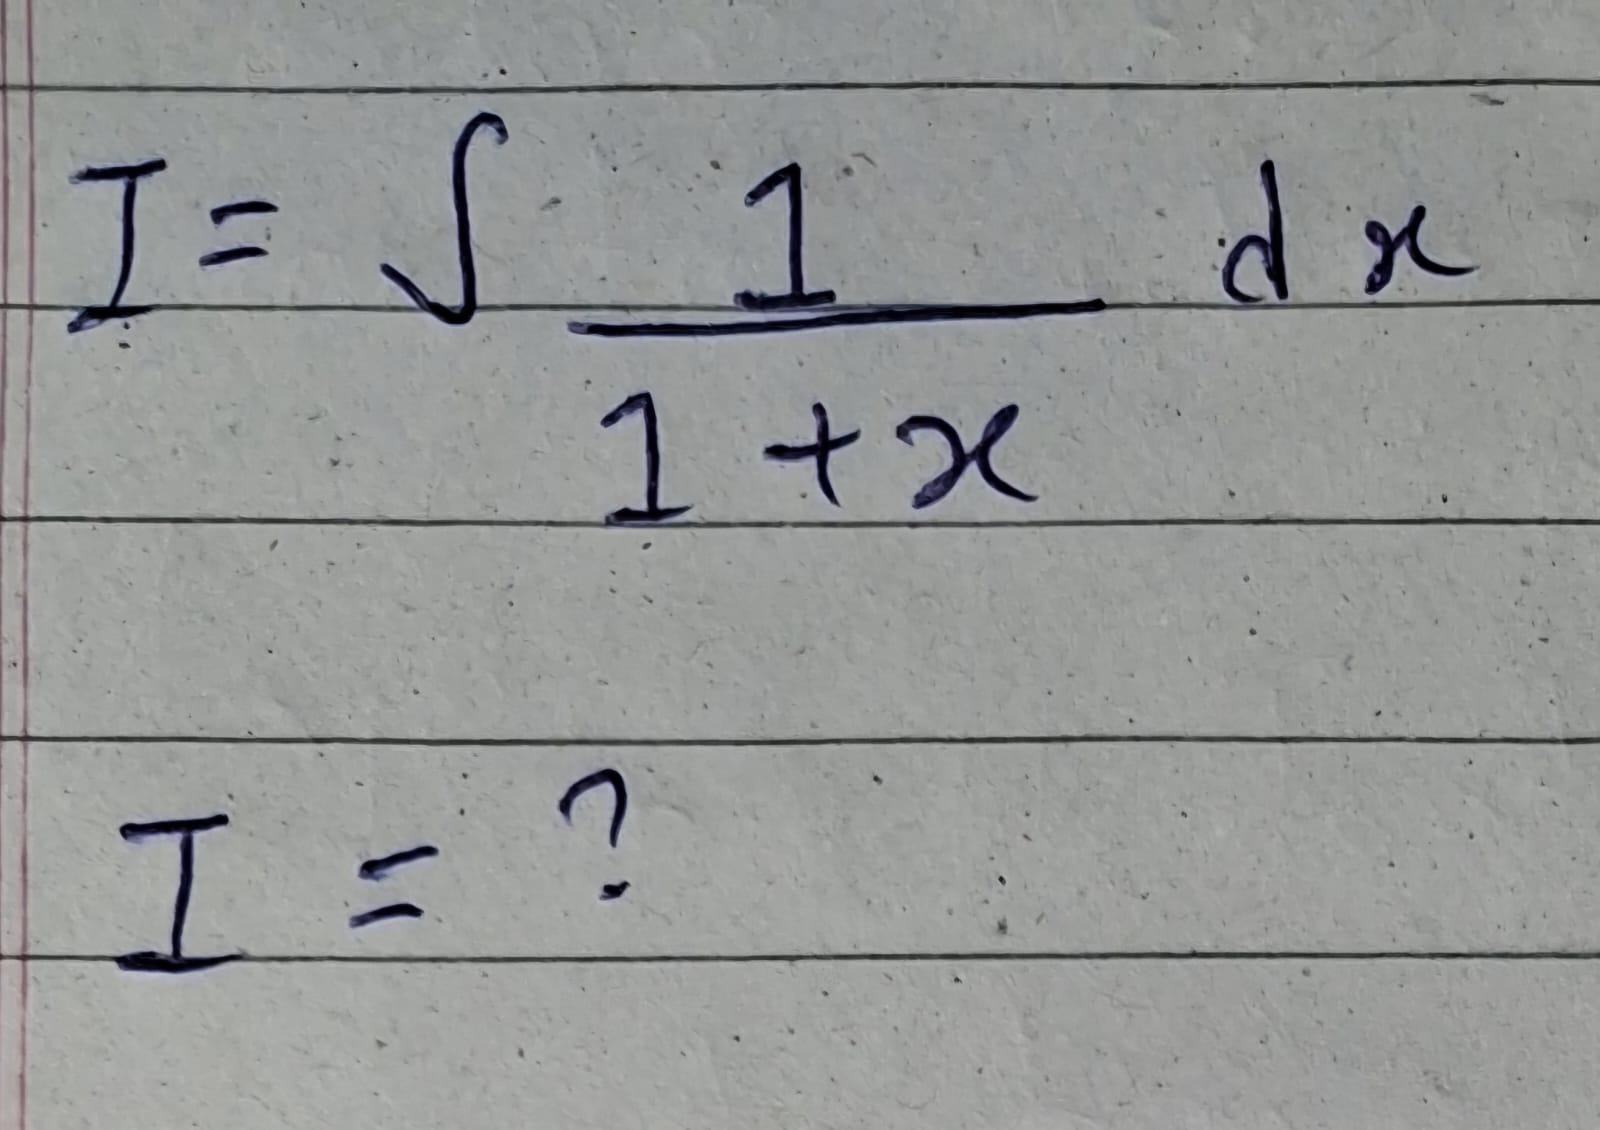 I = ∫ 1/(1 + x) dx
I = ?